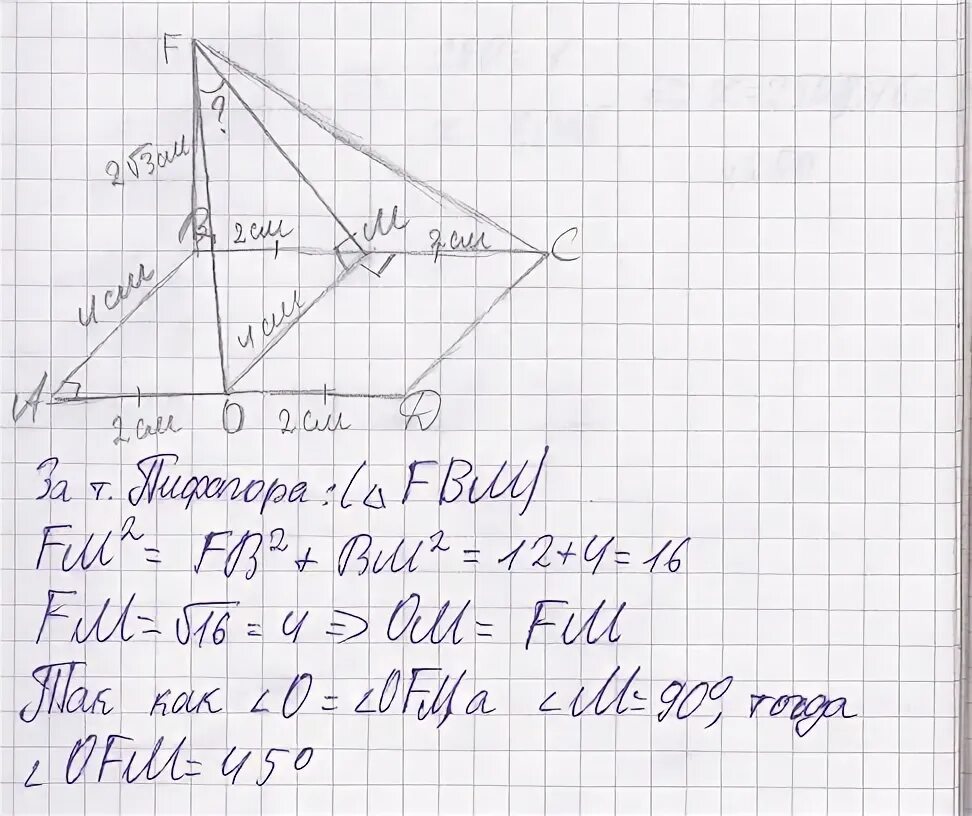 F
?
2√3 см
B 2см M 2см C
4 см
4 см
A 2см O 2см D
За т. Пифагора: (△ FBM)
FM² = FB² + BM² = 12+4 = 16
FM = √16 = 4 => OM = FM
Так как ∠O = ∠OFM, а ∠M = 90°, тогда
∠OFM = 45°